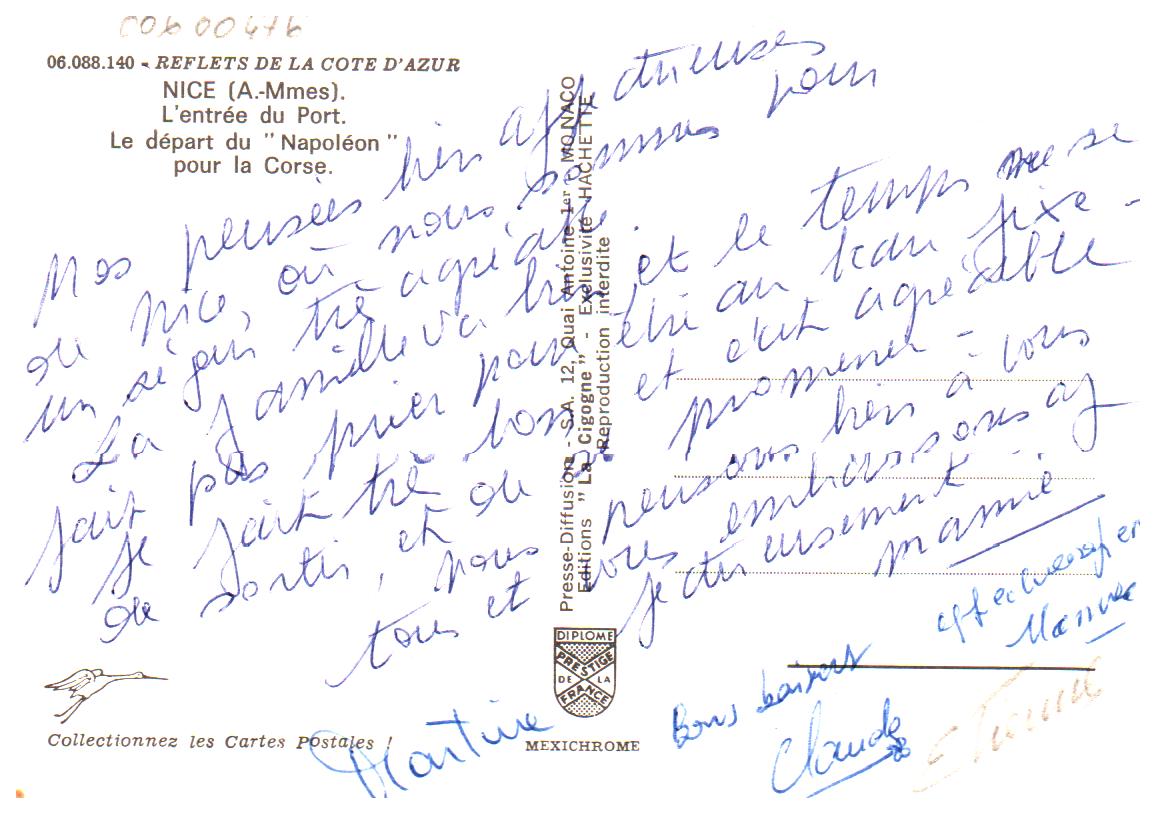 COB 00476
06.088.140 - REFLETS DE LA COTE D'AZUR
NICE (A.-Mmes).
L'entrée du Port.
Le départ du "Napoléon"
pour la Corse.
Nos pensées bien affectueuses
de Nice, où nous sommes pour
un séjour très agréable.
La famille va bien, et le temps ne se
fait pas prier pour être au beau fixe -
fait très bon et c'est agréable
de sortir, et de se promener -
nous pensons bien à vous
tous et vous embrassons af
fectueusement -
mamie
Presse-Diffusion - S.A. 12, Quai Antoine 1er - MONACO
Editions "La Cigogne" - Exclusivité HACHETTE
Reproduction interdite
DIPLOME
PRESTIGE
DE LA
FRANCE
Collectionnez les Cartes Postales !
MEXICHROME
Martine
Bons baisers
Claude